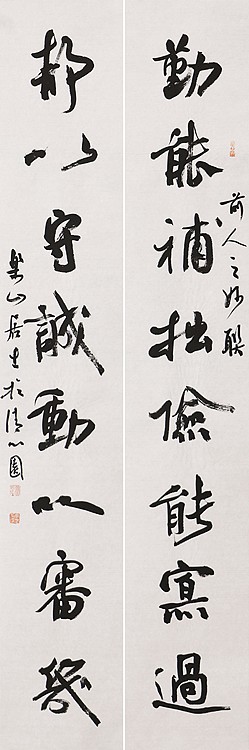 勤能補拙儉能寡過
前人之妙聯
靜以守誠動以審幾
樂山居於清心園